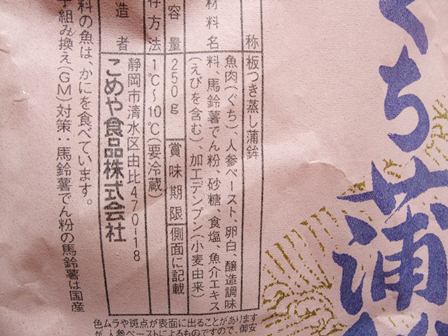 ぐち蒲
称 板つき蒸し蒲鉾
材料 魚肉(ぐち)、人参ペースト、卵白、醸造調味
料、馬鈴薯でん粉、砂糖、食塩、魚介エキス
(えびを含む)、加工デンプン(小麦由来)
容量 250g 賞味期限 側面に記載
存方法 1℃〜10℃(要冷蔵)
造者 静岡市清水区由比470-18
こめや食品株式会社
料の魚は、かにを食べています。
子組み換え(GM)対策:馬鈴薯でん粉の馬鈴薯は国産
色ムラや斑点が表面に出ることがあります
が人参ペーストによるものですので、御安